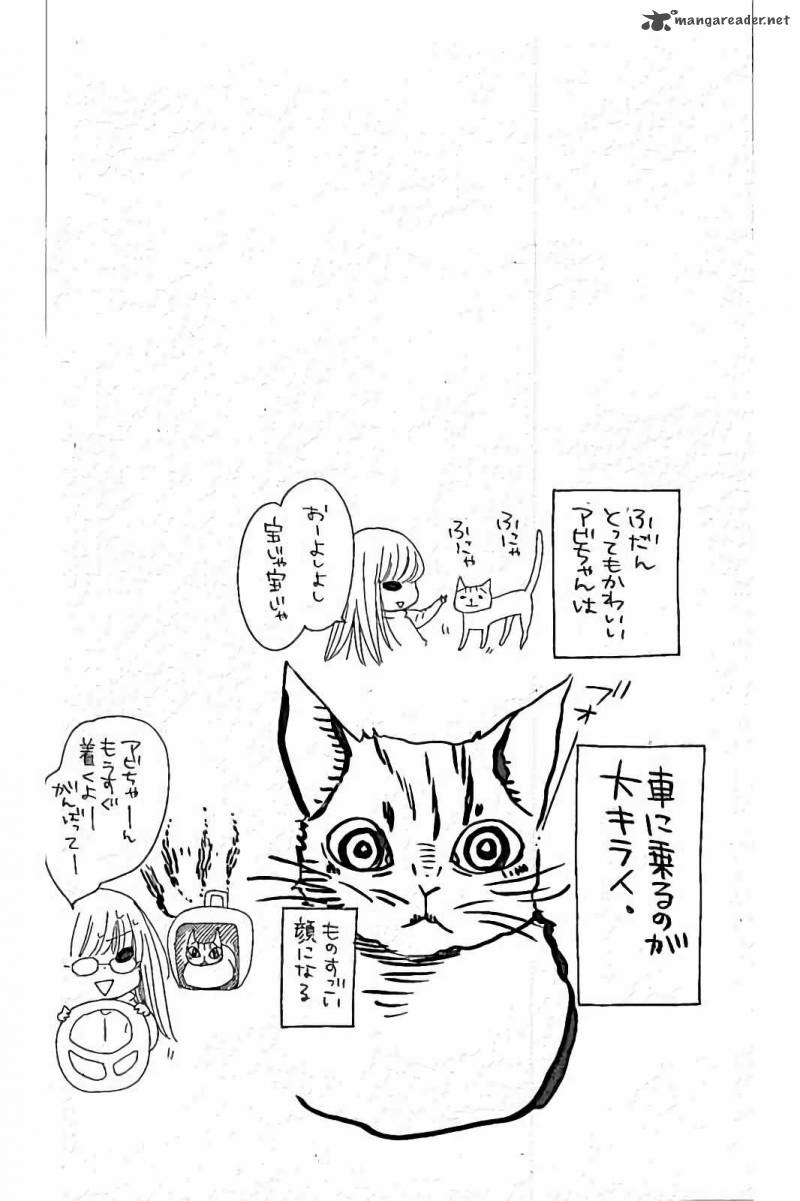 mangareader.net
ふだん
とってもかわいい
アビちゃんは
ふにゃ
ふにゃ
おーよしよし
宝じゃ宝じゃ
車に乗るのが
大キライ。
ものすっごい
顔になる
アビちゃーん
もうすぐ
着くよー
がんばってー